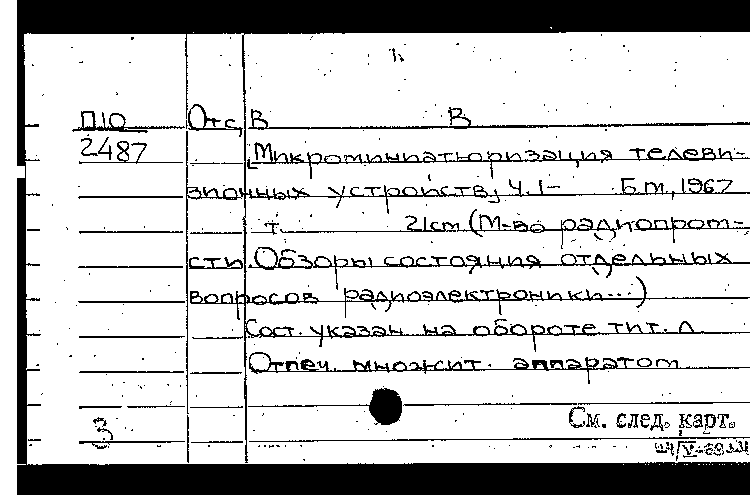 1.
П10 Отс, В В
2487 [Микроминиатюризация телеви-
зионных устройств, Ч. 1- Б.м., 1967
т. 21см (М-во радиопром-
сти. Обзоры состояния отдельных
вопросов радиоэлектроники...)
Сост. указан на обороте тит. л.
Отпеч. множит. аппаратом
3 См. след. карт.